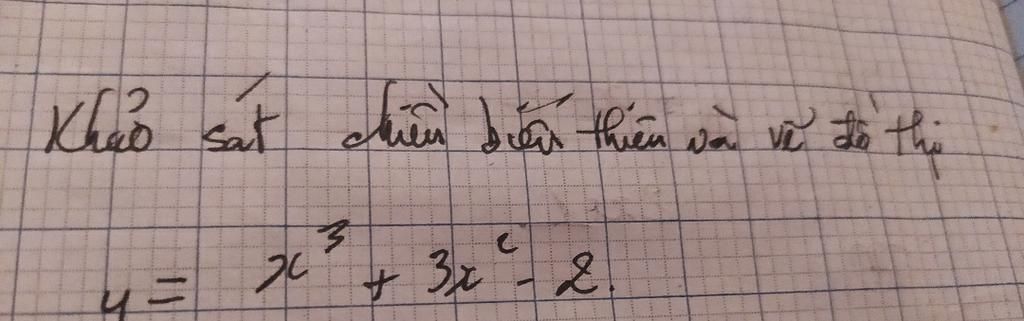 Khảo sát chiều biến thiên và vẽ đồ thị
y = x³ + 3x² - 2.